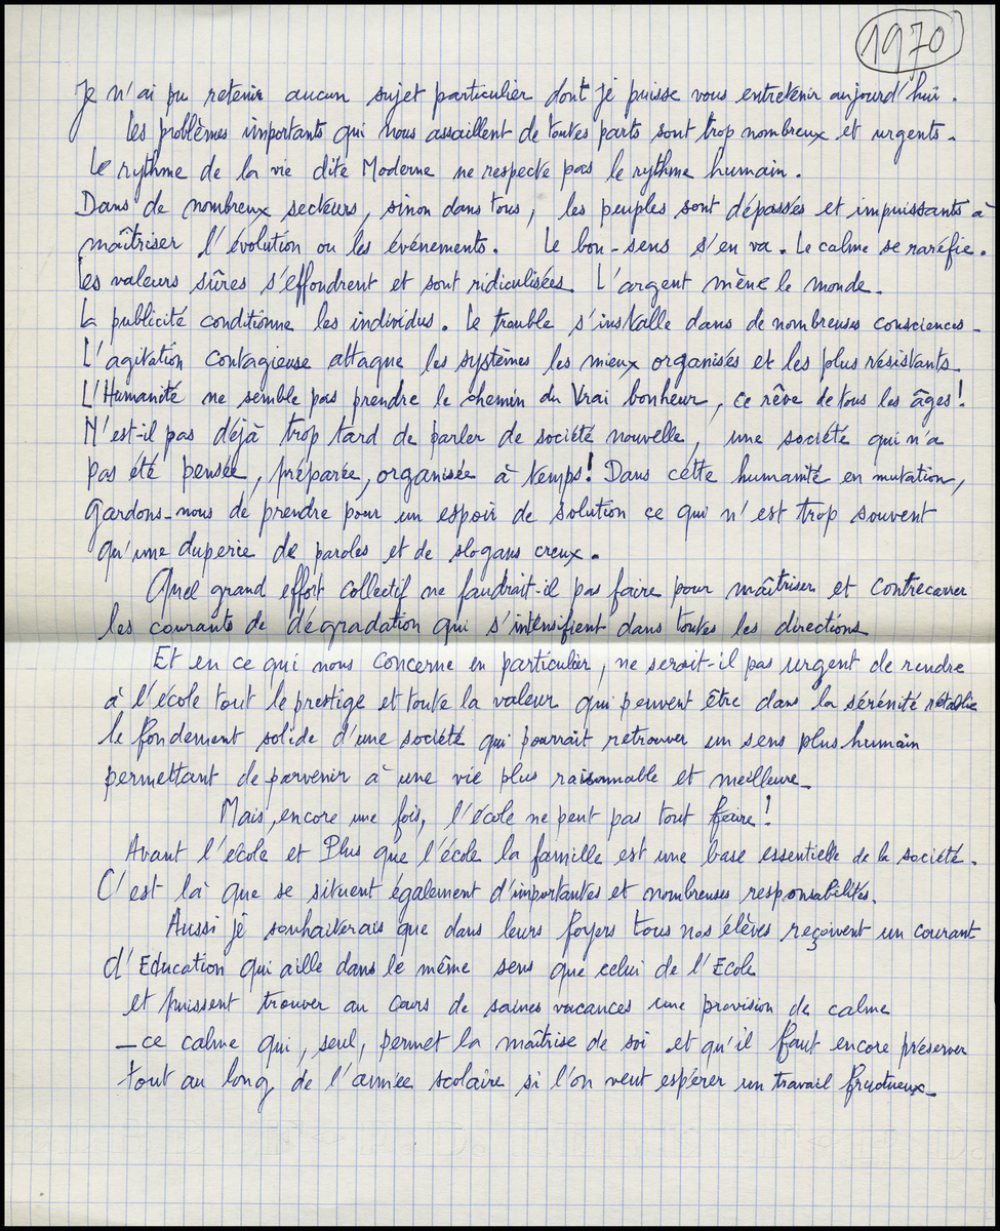 1970
Je n'ai pu retenir aucun sujet particulier dont je puisse vous entretenir aujourd'hui.
Les problèmes importants qui nous assaillent de toutes parts sont trop nombreux et urgents.
Le rythme de la vie dite Moderne ne respecte pas le rythme humain.
Dans de nombreux secteurs, sinon dans tous, les peuples sont dépassés et impuissants à
maîtriser l'évolution ou les événements. Le bon-sens s'en va. Le calme se raréfie.
Les valeurs sûres s'effondrent et sont ridiculisées. L'argent mène le monde.
La publicité conditionne les individus. Le trouble s'installe dans de nombreuses consciences.
L'agitation contagieuse attaque les systèmes les mieux organisés et les plus résistants.
L'Humanité ne semble pas prendre le chemin du Vrai bonheur, ce rêve de tous les âges!
N'est-il pas déjà trop tard de parler de société nouvelle, une société qui n'a
pas été pensée, préparée, organisée à temps! Dans cette humanité en mutation,
Gardons-nous de prendre pour un espoir de solution ce qui n'est trop souvent
qu'une duperie de paroles et de slogans creux.
Quel grand effort collectif ne faudrait-il pas faire pour maîtriser et contrecarrer
les courants de dégradation qui s'intensifient dans toutes les directions
Et en ce qui nous concerne en particulier, ne serait-il pas urgent de rendre
à l'école tout le prestige et toute la valeur qui peuvent être dans la sérénité rétablie
le fondement solide d'une société qui pourrait retrouver un sens plus humain
permettant de parvenir à une vie plus raisonnable et meilleure.
Mais, encore une fois, l'école ne peut pas tout faire!
Avant l'école et Plus que l'école la famille est une base essentielle de la société.
C'est là que se situent également d'importantes et nombreuses responsabilités.
Aussi je souhaiterais que dans leurs foyers tous nos élèves reçoivent un courant
d'Education qui aille dans le même sens que celui de l'Ecole
et puissent trouver au cours de saines vacances une provision de calme
_ce calme qui, seul, permet la maîtrise de soi et qu'il faut encore préserver
tout au long de l'année scolaire si l'on veut espérer un travail fructueux_